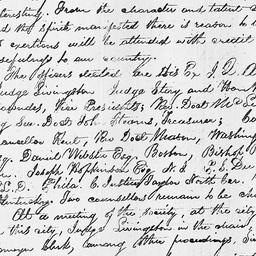 teresting. From the character and talent a
d the spirit manifested there is reason to
exertions will be attended with credit
usefulness to our country.
The officers elected are His Ex. J. Q. A
Judge Livingston Judge Story and Hon.
condes, Vice Presidents; Rev. Doct McL
g Sec. Doct. Joh. Stearns, Treasurer; Co
hancellor Kent, Rev. Doct. Mason, Washing
g. Daniel Webster Esq. Boston, Bishop
n. Joseph Hopkinson Esq N. J.
L.D. Phila. C. Justice Taylor North Car.
Kentucky. Two counsellors remain to be ch
At a meeting of the society, at the city
this city, Judge Livingston in the chair,
Clerk, (among other proceedings,